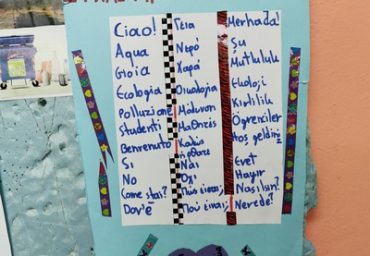 Ciao! Γεια Merhaba!
Aqua Νερό Su
Gioia Χαρά Mutluluk
Ecologia Οικολογία Ekoloji
Polluzione Μόλυνση Kirlilik
Studenti Μαθητές Öğrenciler
Benvenuto Καλώς ήρθατε hoş geldiniz
Si Ναι Evet
No Όχι Hayır
Come stai? Πώς είναι; Nasılsın?
Dov'è Πού είναι; Nerede?